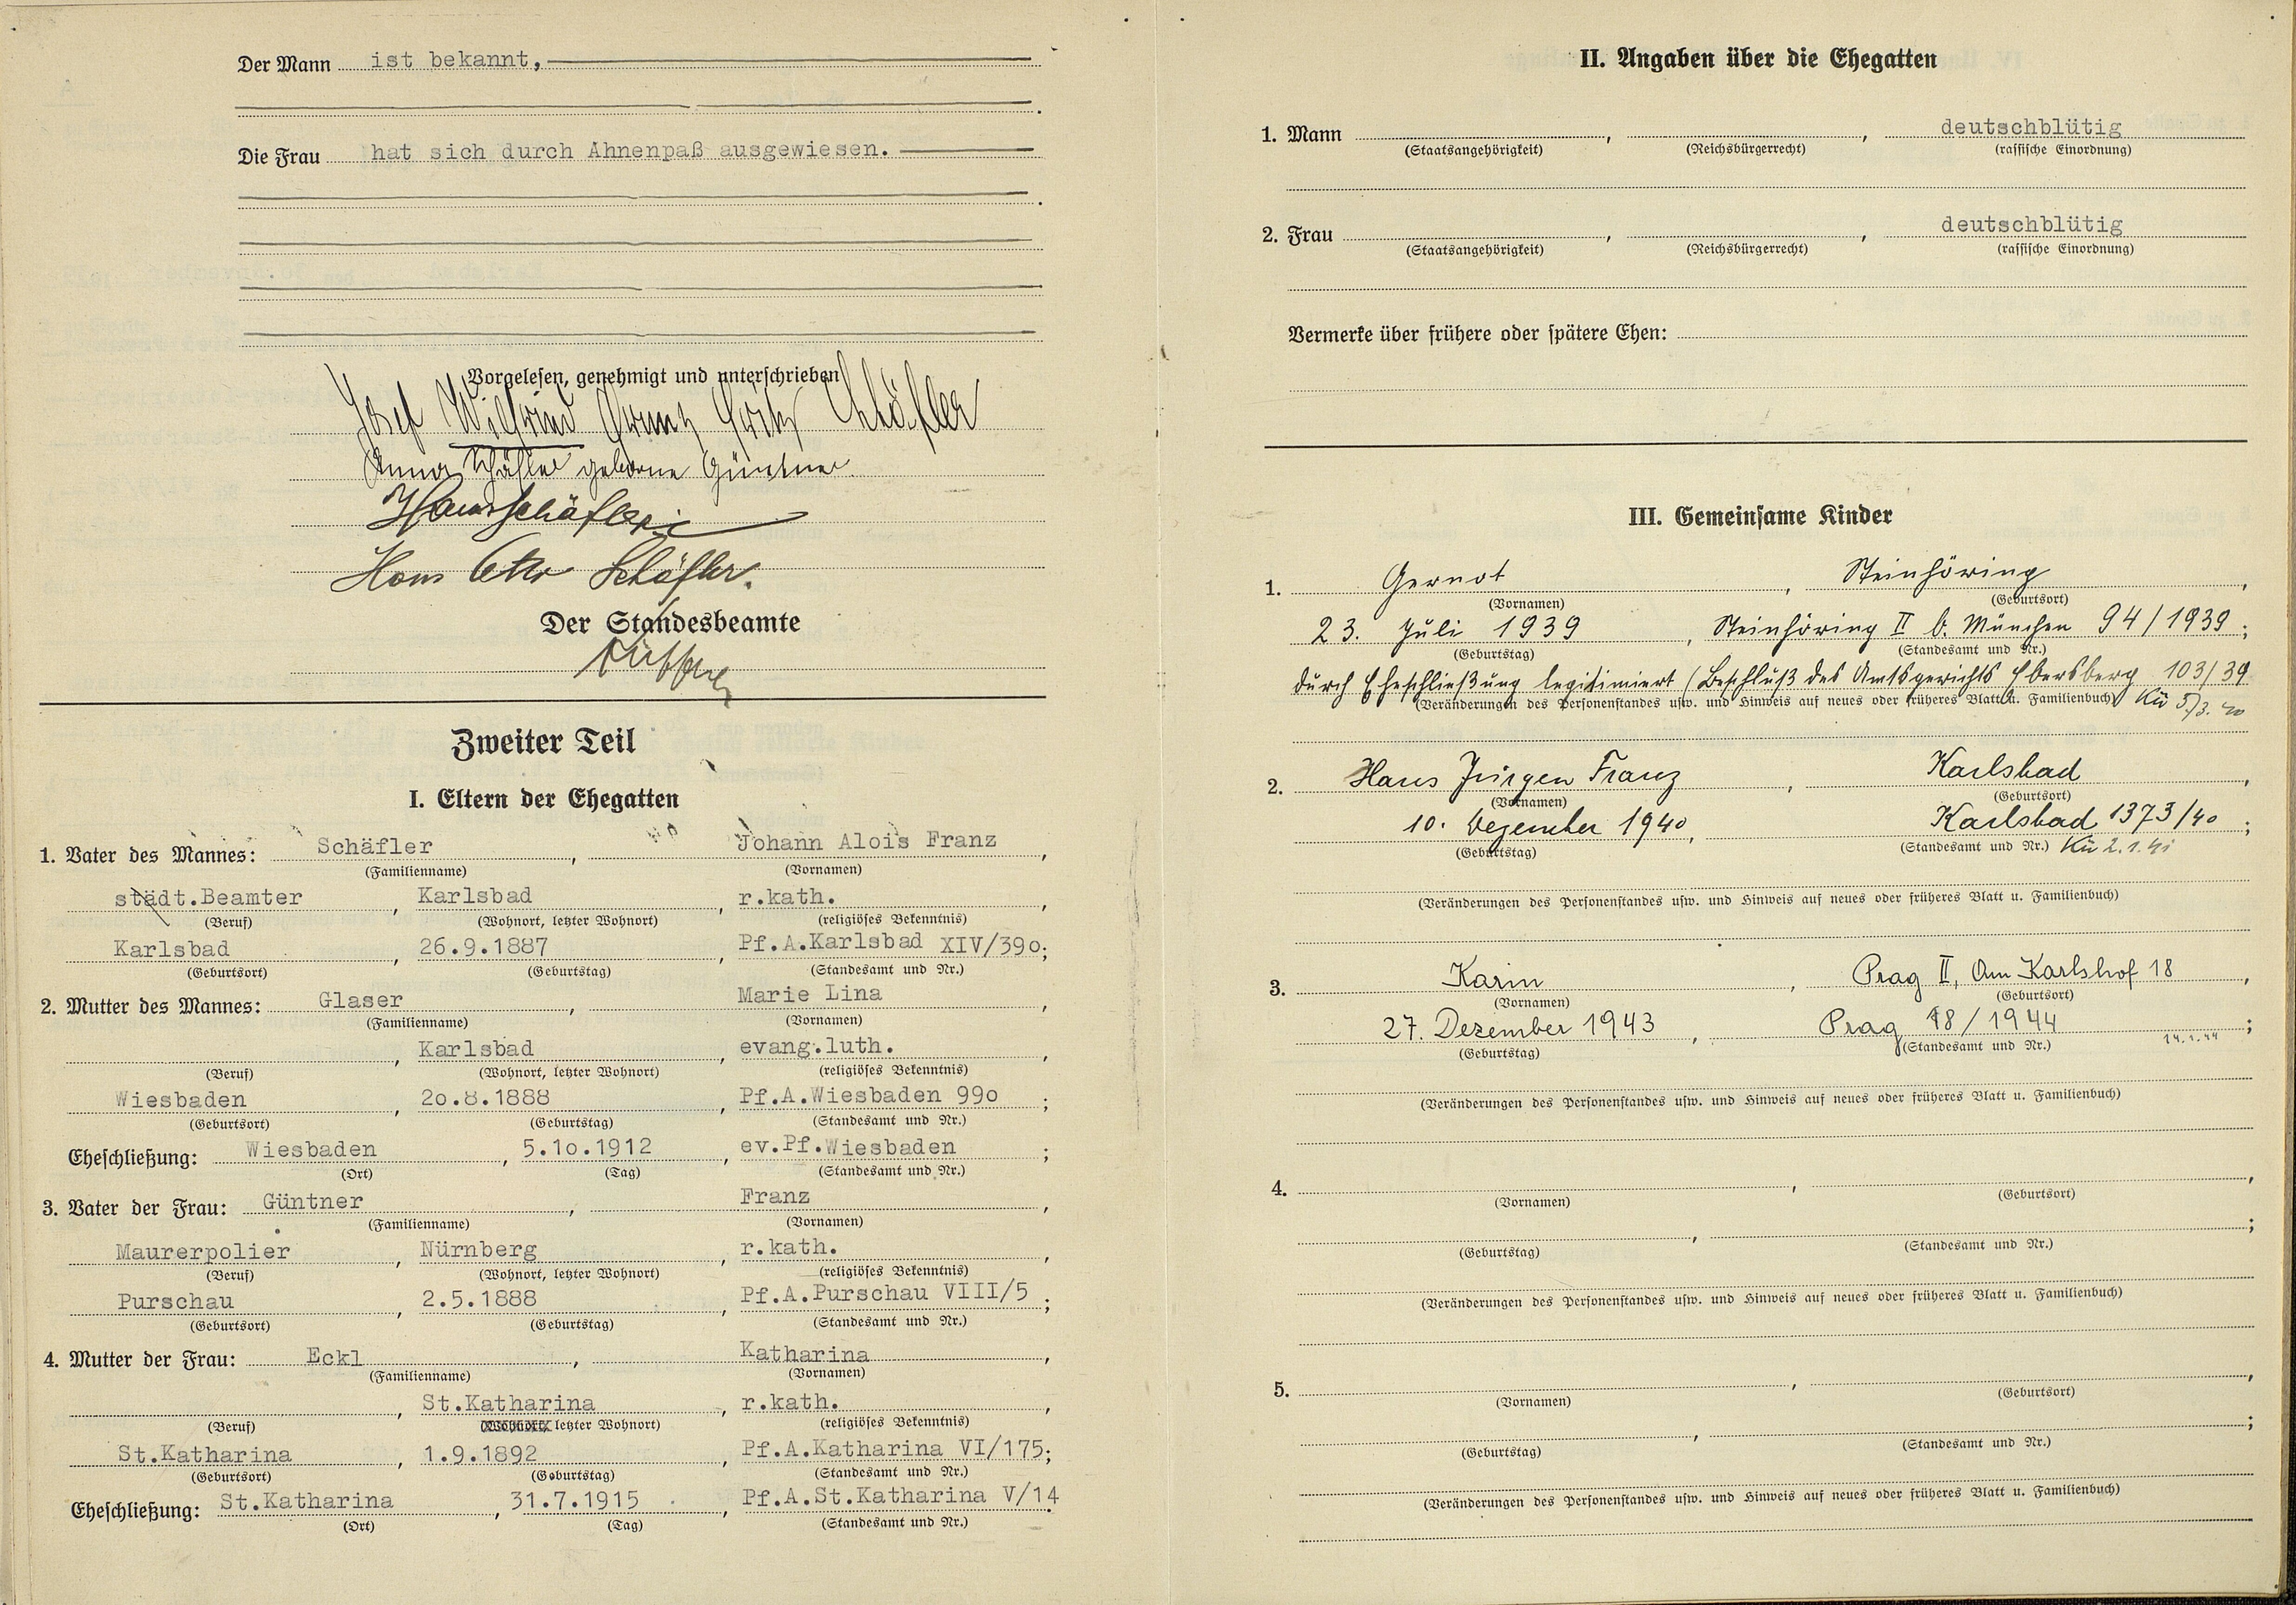 Der Mann ist bekannt,
Die Frau hat sich durch Ahnenpaß ausgewiesen.
Vorgelesen, genehmigt und unterschrieben
Josef Wilfried Franz Fritz Schäfler
Anna Schäfler geborne Güntner
Hans Schäfler
Hans Otto Schäfler.
Der Standesbeamte
Zweiter Teil
I. Eltern der Ehegatten
1. Vater des Mannes: Schäfler, Johann Alois Franz,
(Familienname) (Vornamen)
städt.Beamter, Karlsbad, r.kath.,
(Beruf) (Wohnort, letzter Wohnort) (religiöses Bekenntnis)
Karlsbad, 26.9.1887, Pf.A.Karlsbad XIV/39o;
(Geburtsort) (Geburtstag) (Standesamt und Nr.)
2. Mutter des Mannes: Glaser, Marie Lina,
(Familienname) (Vornamen)
, Karlsbad, evang.luth.,
(Beruf) (Wohnort, letzter Wohnort) (religiöses Bekenntnis)
Wiesbaden, 2o.8.1888, Pf.A.Wiesbaden 99o;
(Geburtsort) (Geburtstag) (Standesamt und Nr.)
Eheschließung: Wiesbaden, 5.1o.1912, ev.Pf.Wiesbaden;
(Ort) (Tag) (Standesamt und Nr.)
3. Vater der Frau: Güntner, Franz,
(Familienname) (Vornamen)
Maurerpolier, Nürnberg, r.kath.,
(Beruf) (Wohnort, letzter Wohnort) (religiöses Bekenntnis)
Purschau, 2.5.1888, Pf.A.Purschau VIII/5;
(Geburtsort) (Geburtstag) (Standesamt und Nr.)
4. Mutter der Frau: Eckl, Katharina,
(Familienname) (Vornamen)
, St.Katharina, r.kath.,
(Beruf) letzter Wohnort) (religiöses Bekenntnis)
St.Katharina, 1.9.1892, Pf.A.Katharina VI/175;
(Geburtsort) (Geburtstag) (Standesamt und Nr.)
Eheschließung: St.Katharina, 31.7.1915, Pf.A.St.Katharina V/14
(Ort) (Tag) (Standesamt und Nr.)
II. Angaben über die Ehegatten
1. Mann , , deutschblütig
(Staatsangehörigkeit) (Reichsbürgerrecht) (rassische Einordnung)
2. Frau , , deutschblütig
(Staatsangehörigkeit) (Reichsbürgerrecht) (rassische Einordnung)
Vermerke über frühere oder spätere Ehen:
III. Gemeinsame Kinder
1. Gernot, Steinhöring,
(Vornamen) (Geburtsort)
23. Juli 1939, Steinhöring II b. München 94/1939;
(Geburtstag) (Standesamt und Nr.)
durch Eheschließung legitimiert (Beschluß des Amtsgerichts Ebersberg 103/39
(Veränderungen des Personenstandes usw. und Hinweis auf neues oder früheres Blatt u. Familienbuch) Kü 5/3. 40
2. Hans Jürgen Franz, Karlsbad,
(Vornamen) (Geburtsort)
10. Dezember 1940, Karlsbad 1373/40;
(Geburtstag) (Standesamt und Nr.) Kü 2.1.41
(Veränderungen des Personenstandes usw. und Hinweis auf neues oder früheres Blatt u. Familienbuch)
3. Karin, Prag II, Am Karlshof 18,
(Vornamen) (Geburtsort)
27. Dezember 1943, Prag 18/1944;
(Geburtstag) (Standesamt und Nr.) 14.1.44
(Veränderungen des Personenstandes usw. und Hinweis auf neues oder früheres Blatt u. Familienbuch)
4. , ,
(Vornamen) (Geburtsort)
, ;
(Geburtstag) (Standesamt und Nr.)
(Veränderungen des Personenstandes usw. und Hinweis auf neues oder früheres Blatt u. Familienbuch)
5. , ,
(Vornamen) (Geburtsort)
, ;
(Geburtstag) (Standesamt und Nr.)
(Veränderungen des Personenstandes usw. und Hinweis auf neues oder früheres Blatt u. Familienbuch)